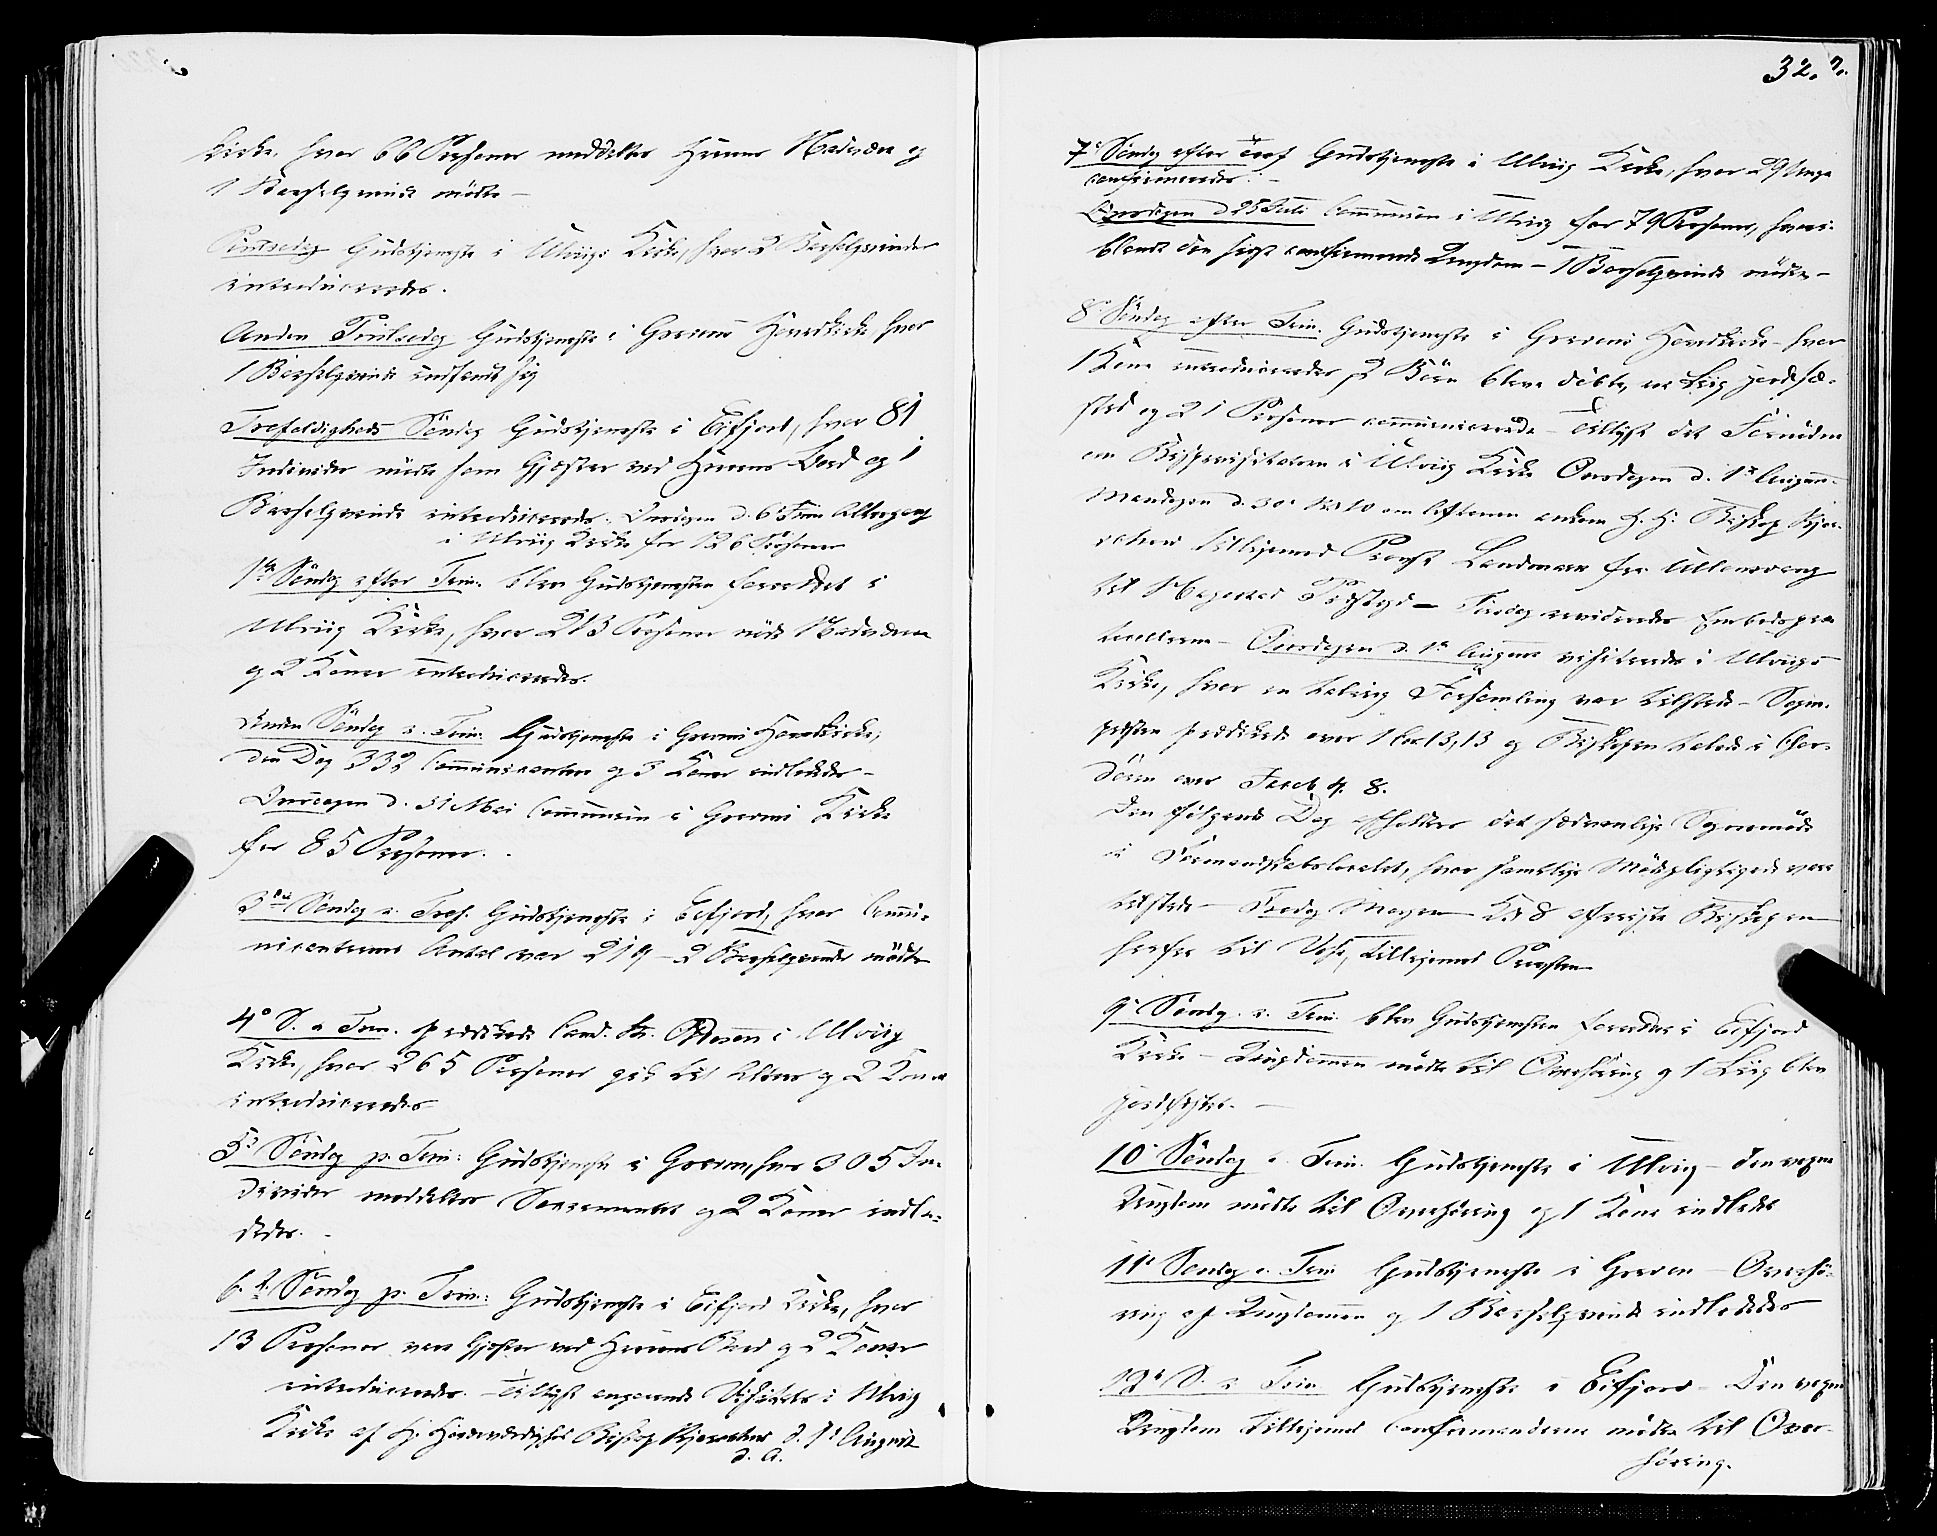 Kirke, hvor 66 Personer meddeltes Herrens Nadvere og
1 Barselqvinde mödte –
Pintsedag Gudstjeneste i Ulvigs Kirke, hvor 2 Barselqvinder
introduceredes.
Anden Pintsedag Gudstjeneste i Gravens Hovedkirke hvor
1 Barselqvinde indfandt sig
Trefoldigheds Söndag Gudstjeneste i Eifjord, hvor 81
Individer mödte som Gjæster ved Herrens Bord og 1
Barselqvinde introduceredes. Onsdagen d. 6 Juni Altergang
i Ulvig Kirke for 126 Personer
1ste Söndag efter Trin. blev Gudstjenesten forrettet i
Ulvig Kirke, hvor 213 Personer nöde Nadverem
og 2 Koner introduceredes.
Anden Söndag e. Trin. Gudstjeneste i Gravens Hovedkirke,
den Dag 332 Communicanter og 3 Koner indlededes –
Onsdagen d. 31 Mai Communion i Gravens Kirke
for 85 Personer. –
3die Söndag e. Tref. Gudstjeneste i Eifjord, hvor Commu-
nicanternes Antal var 219 – 2 Barselqvinder mödte
4e S. e Trin. prædikede Cand. th. Olesen i Ulvig
Kirke, hvor 265 Personer gik til Alters og 2 Koner
introduceredes
5e Söndag p. Trin: Gudstjeneste i Graven, hvor 305 In-
divider meddeltes Sacramentet og 2 Koner indle-
dedes. –
6te Söndag p. Trin: Gudstjeneste i Eifjord Kirke, hvor
13 Personer vare Gjester ved Herrens Bord og 2 Koner
introduceredes. – Tillyst angaaende Visitats i Ulvig
Kirke af Hs Höiærværdighed Biskop Kjerschow d. 1e August
d. A.
32.
7e Söndag efter Tref Gudstjeneste i Ulvig Kirke, hvor 29 Unge
confirmeredes. –
Onsdagen d 25 Juli Communion i Ulvig for 79 Personer, hvori-
blandt den sidst confirmerede Ungdom – 1 Barselqvinde mödte –
8e Söndag efter Trin. Gudstjeneste i Gravens Hovedkirke – hvor
1 Kone introduceredes, 2 Börn bleve döbte, en Liig jordfæ-
stet og 21 Personer communicerede – Tillyst det Fornödne
om Bispevisitatsen i Ulvig Kirke Onsdagen d. 1ste August
Mandagen d. 30e Kl. 10 om Aftenen ankom H. H. Biskop Kjer-
schow tilligemed Provst Landmark fra Ullensvang
til Hagestad Præstegd – Tirsdag revideredes Embedspro-
tocollerne – Onsdagen d. 1ste August visiteredes i Ulvigs
Kirke, hvor en talrig Forsamling var tilstede – Sogne-
præsten prædikede over 1 Cor 13,13 og Biskopen talede i Chor-
dören over Jacob 4. 8.
Den fölgende Dag afholdtes det sædvanlige Sognemöde
i Formandskabslocalet, hvor samtlige Mödepligtige vare
tilstede – Fredag Morgen Kl 8 afreiste Biskopen
herfra til Voss, tilligemed Provsten
9e Söndag e. Trin. blev Gudstjenesten forrettet i Eifjord
Kirke – Ungdommen mödte til Overhöring og 1 Liig blev
jordfæstet. –
10e Söndag e. Trin. Gudstjeneste i Ulvig – den voxne
Ungdom mödte til Overhöring og 1 Kone indledet
11e Söndag e. Trin Gudstjeneste i Graven – Overhö-
ring af Ungdommen og 1 Barselqvinde indlededes
12e S. e Trin. Gudstjeneste i Eifjord – Den voxne
Ungdom tilligemed Confirmanderne mödte til Over-
höring.